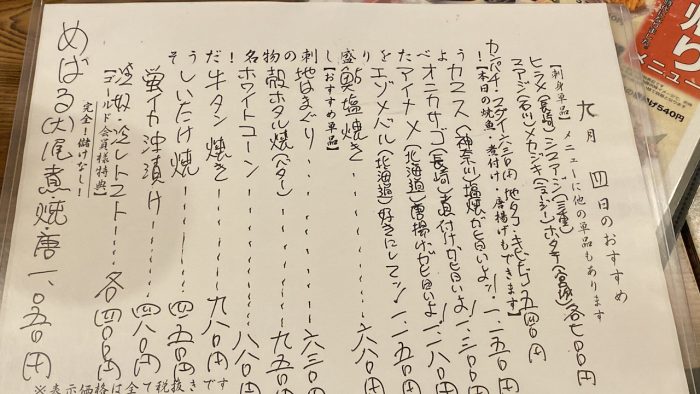 九月 四日のおすすめ
【刺身単品】メニューに他の単品もあります
ヒラメ(長崎)シマアジ(三重)
メカジキ ホタテ(宮城)各七〇〇円
地タコ・キビナゴ 五四〇円
【本日の焼魚・煮付け・唐揚げもできます】
カマス(神奈川)塩焼が旨いよ!一、一五〇円
オニカサゴ(長崎)煮付けが旨いよ!一、三〇〇円
アイナメ(北海道)唐揚げが旨いよ 一、二八〇円
エゾメバル(北海道)好きにしてッ!一、一五〇円
鮎塩焼き 六八〇円
【おすすめ単品】
地はまぐり 六三〇円
殻ホタル焼(バター) 九五〇円
ホワイトコーン 八八〇円
牛タン焼き 九八〇円
しいたけ焼 四五〇円
蛍イカ沖漬け 四八〇円
冷奴・冷しトマト 各四〇〇円
【ゴールド会員様特典】
完全!儲けなし!
めばる(大)一尾煮・焼・唐 一、〇五〇円
※表示価格は全て税抜きです
うべたを盛りし
刺物名!だそう
メニュー
540円